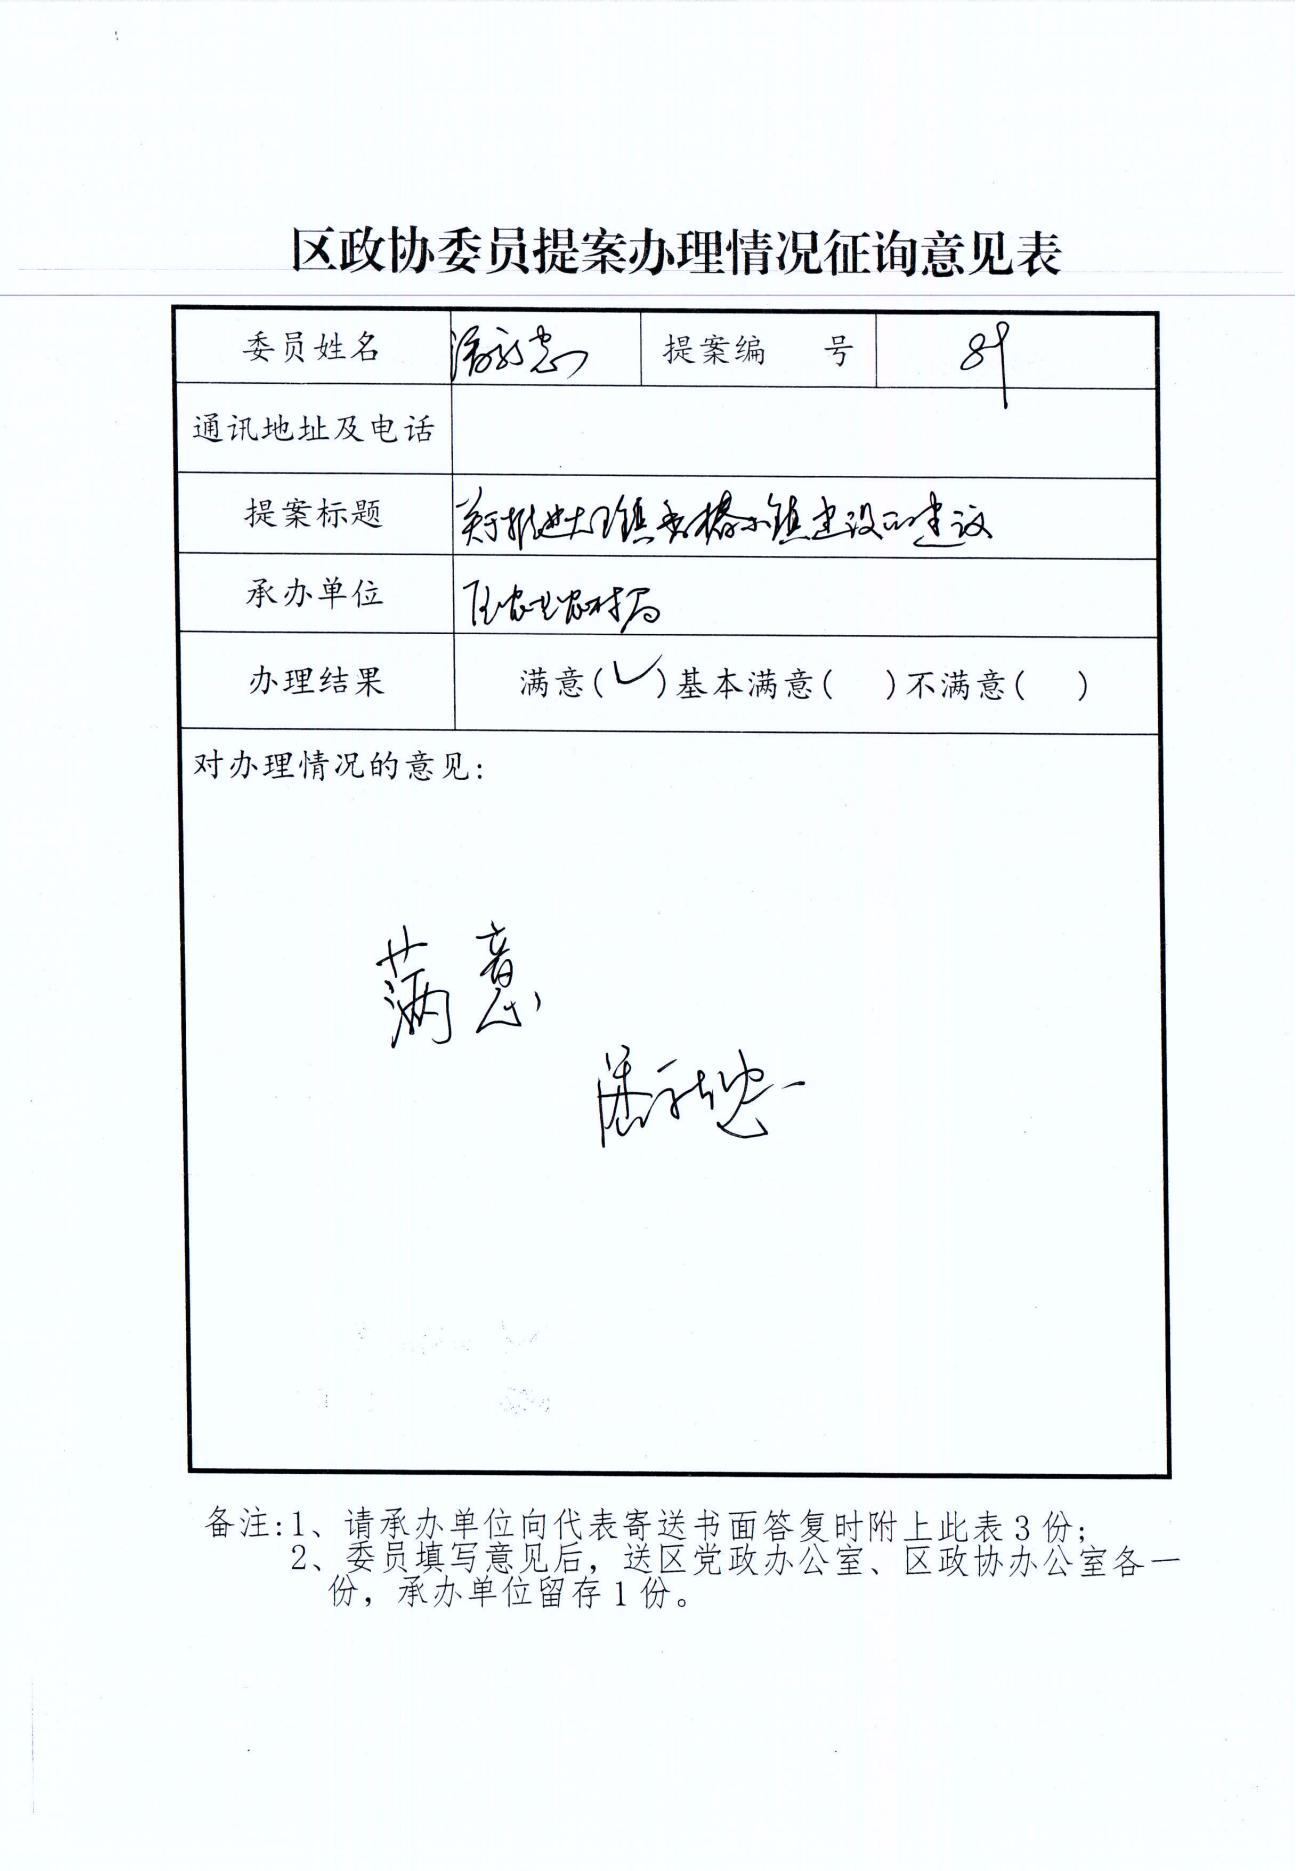 区政协委员提案办理情况征询意见表
委员姓名 提案编 号 89
通讯地址及电话
提案标题 关于推进大王镇香椿小镇建设的建议
承办单位 区农业农村局
办理结果 满意(✓)基本满意( )不满意( )
对办理情况的意见:
满意
备注:1、请承办单位向代表寄送书面答复时附上此表3份;
2、委员填写意见后，送区党政办公室、区政协办公室各一
份，承办单位留存1份。